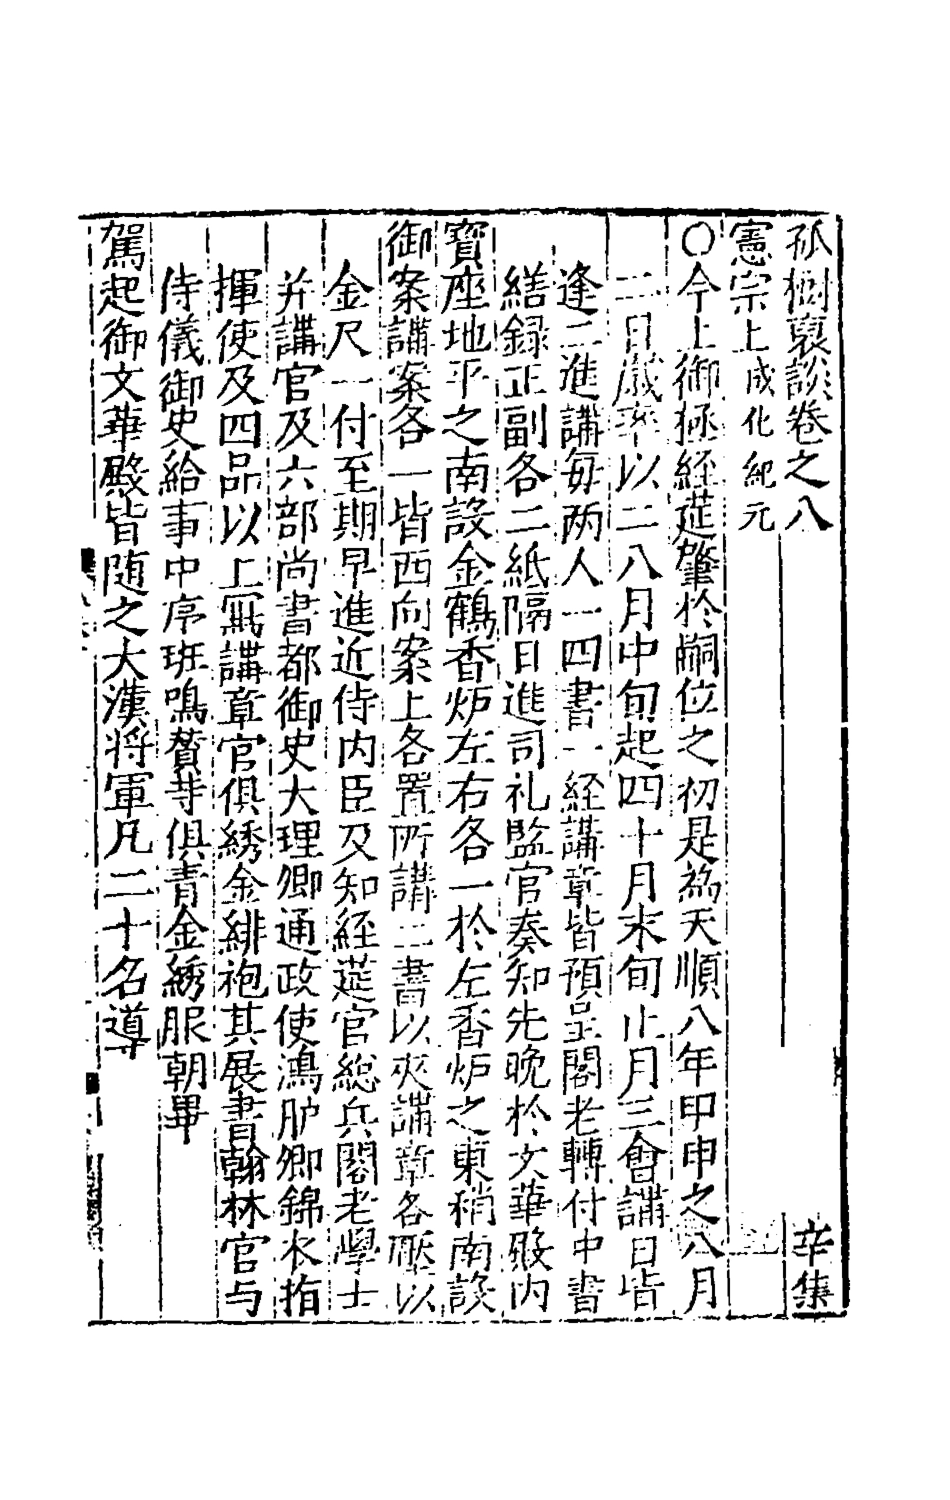 孤樹裒談卷之八　辛集
憲宗上成化紀元
○今上御極經莚肇於嗣位之初是為天順八年甲申之八月
二日嵗率以二八月中旬起四十月末旬止月三會講日皆
逢二進講每两人一四書一経講章皆預呈閣老轉付中書
繕録正副各二紙隔日進司礼監官奏知先晚於文華殿内
寳座地平之南設金鶴香炉左右各一於左香炉之東稍南設
御案講案各一皆西向案上各置所講二書以夾講章各壓以
金尺一付至期早進近侍内臣及知経莚官総兵閣老學士
并講官及六部尚書都御史大理卿通政使鴻胪卿錦衣指
揮使及四品以上寫講章官俱綉金緋袍其展書翰林官与
侍儀御史給事中序班鳴賛䓁俱青金綉服朝畢
駕起御文華殿皆随之大漢将軍凡二十名導